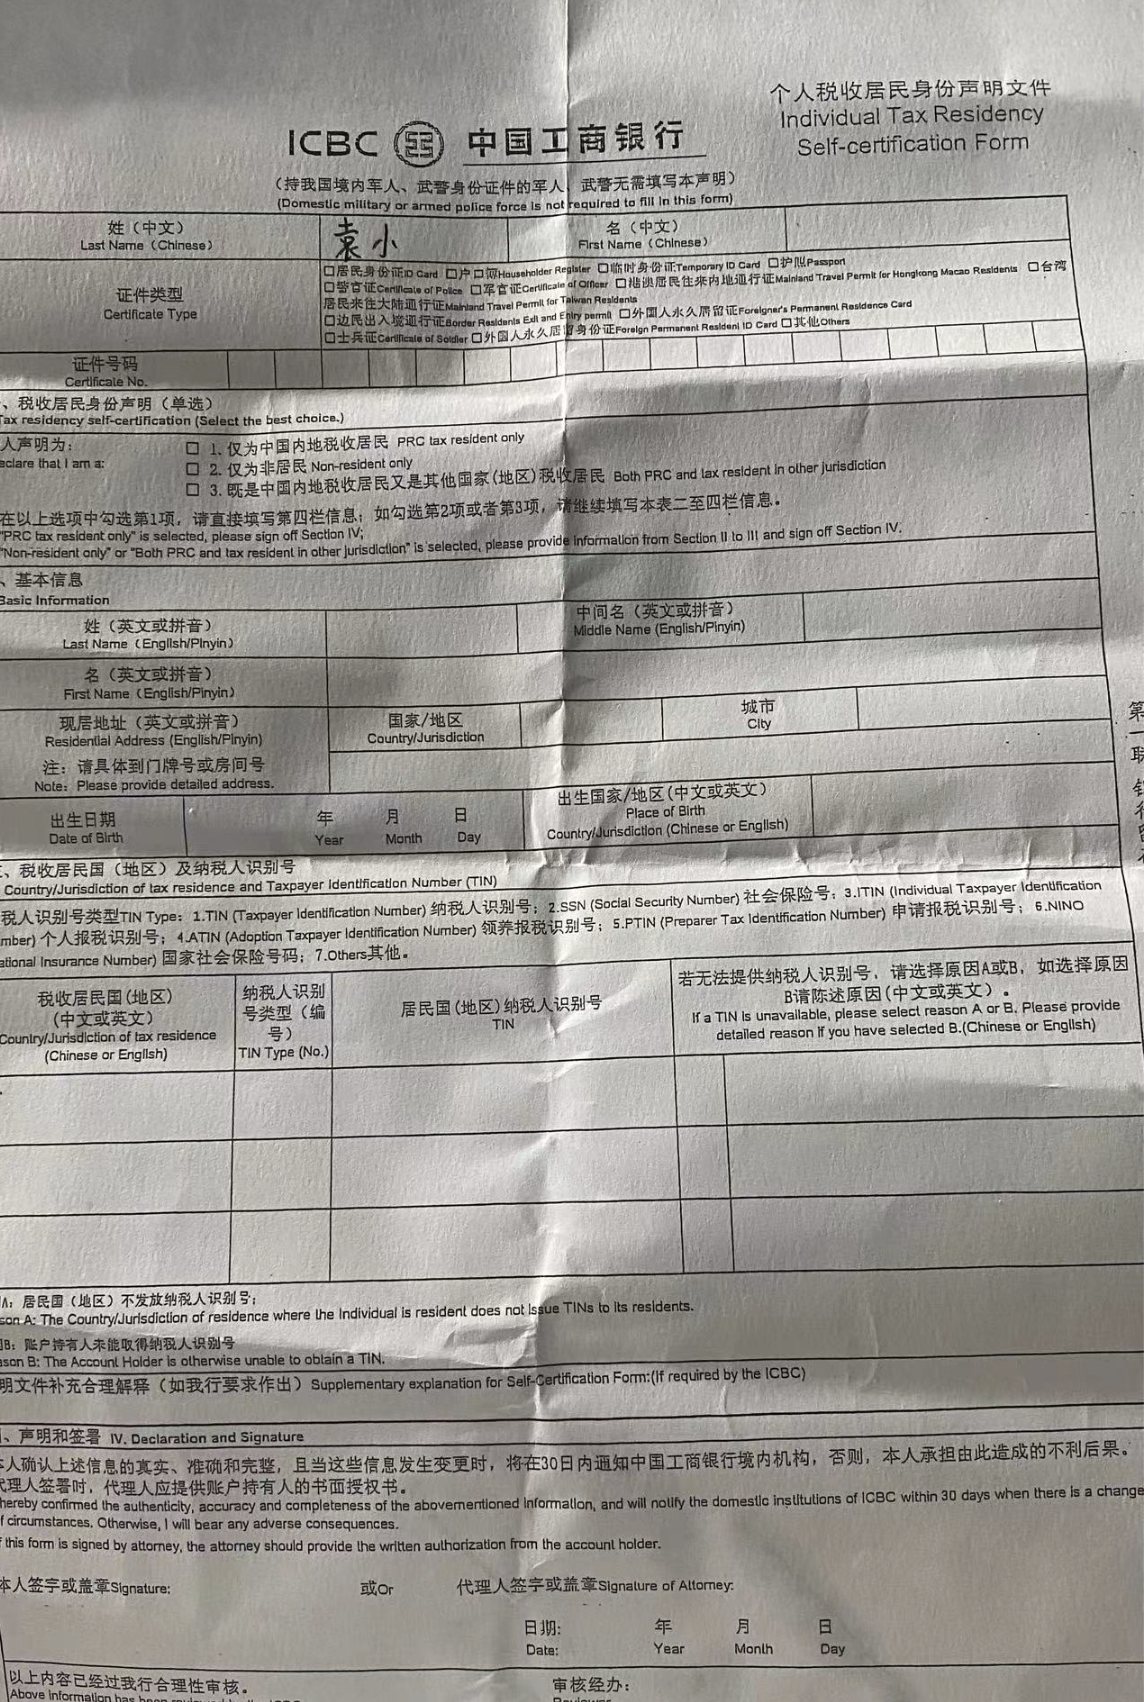 个人税收居民身份声明文件
Individual Tax Residency
Self-certification Form
ICBC 中国工商银行
（持我国境内军人、武警身份证件的军人、武警无需填写本声明）
(Domestic military or armed police force is not required to fill in this form)
姓（中文） 袁小 名（中文）
Last Name（Chinese） First Name（Chinese）
证件类型
Certificate Type
□居民身份证ID Card □户口簿Householder Register □临时身份证Temporary ID Card □护照Passport
□警官证Certificate of Police □军官证Certificate of Officer □港澳居民往来内地通行证Mainland Travel Permit for Hongkong Macao Residents □台湾
居民来往大陆通行证Mainland Travel Permit for Taiwan Residents
□边民出入境通行证Border Residents Exit and Entry permit □外国人永久居留证Foreigner's Permanent Residence Card
□士兵证Certificate of Soldier □外国人永久居留身份证Foreign Permanent Resident ID Card □其他Others
证件号码
Certificate No.
、税收居民身份声明（单选）
Tax residency self-certification (Select the best choice.)
人声明为：
eclare that I am a:
□ 1. 仅为中国内地税收居民 PRC tax resident only
□ 2. 仅为非居民 Non-resident only
□ 3. 既是中国内地税收居民又是其他国家(地区)税收居民 Both PRC and tax resident in other jurisdiction
在以上选项中勾选第1项，请直接填写第四栏信息；如勾选第2项或者第3项，请继续填写本表二至四栏信息。
"PRC tax resident only" is selected, please sign off Section IV;
"Non-resident only" or "Both PRC and tax resident in other jurisdiction" is selected, please provide information from Section II to III and sign off Section IV.
、基本信息
Basic Information
姓（英文或拼音） 中间名（英文或拼音）
Last Name（English/Pinyin） Middle Name (English/Pinyin)
名（英文或拼音）
First Name（English/Pinyin）
现居地址（英文或拼音） 国家/地区 城市
Residential Address (English/Pinyin) Country/Jurisdiction City
注：请具体到门牌号或房间号
Note: Please provide detailed address.
出生日期 年 月 日
Date of Birth Year Month Day
出生国家/地区(中文或英文)
Place of Birth
Country/Jurisdiction (Chinese or English)
、税收居民国（地区）及纳税人识别号
Country/Jurisdiction of tax residence and Taxpayer Identification Number (TIN)
税人识别号类型TIN Type：1.TIN (Taxpayer Identification Number) 纳税人识别号；2.SSN (Social Security Number) 社会保险号；3.ITIN (Individual Taxpayer Identification
mber) 个人报税识别号；4.ATIN (Adoption Taxpayer Identification Number) 领养报税识别号；5.PTIN (Preparer Tax Identification Number) 申请报税识别号；6.NINO
ational Insurance Number) 国家社会保险号码；7.Others其他。
税收居民国(地区)
(中文或英文)
Country/Jurisdiction of tax residence
(Chinese or English)
纳税人识别
号类型（编
号）
TIN Type (No.)
居民国(地区)纳税人识别号
TIN
若无法提供纳税人识别号，请选择原因A或B，如选择原因
B请陈述原因(中文或英文)。
If a TIN is unavailable, please select reason A or B. Please provide
detailed reason if you have selected B.(Chinese or English)
A：居民国（地区）不发放纳税人识别号；
son A: The Country/Jurisdiction of residence where the individual is resident does not issue TINs to its residents.
B：账户持有人未能取得纳税人识别号
ason B: The Account Holder is otherwise unable to obtain a TIN.
明文件补充合理解释（如我行要求作出）Supplementary explanation for Self-Certification Form:(If required by the ICBC)
、声明和签署 IV. Declaration and Signature
本人确认上述信息的真实、准确和完整，且当这些信息发生变更时，将在30日内通知中国工商银行境内机构，否则，本人承担由此造成的不利后果。
代理人签署时，代理人应提供账户持有人的书面授权书。
hereby confirmed the authenticity, accuracy and completeness of the abovementioned information, and will notify the domestic institutions of ICBC within 30 days when there is a change
f circumstances. Otherwise, I will bear any adverse consequences.
f this form is signed by attorney, the attorney should provide the written authorization from the account holder.
本人签字或盖章Signature: 或Or 代理人签字或盖章Signature of Attorney:
日期: 年 月 日
Date: Year Month Day
以上内容已经过我行合理性审核。 审核经办：
Above information has been
第
一
联